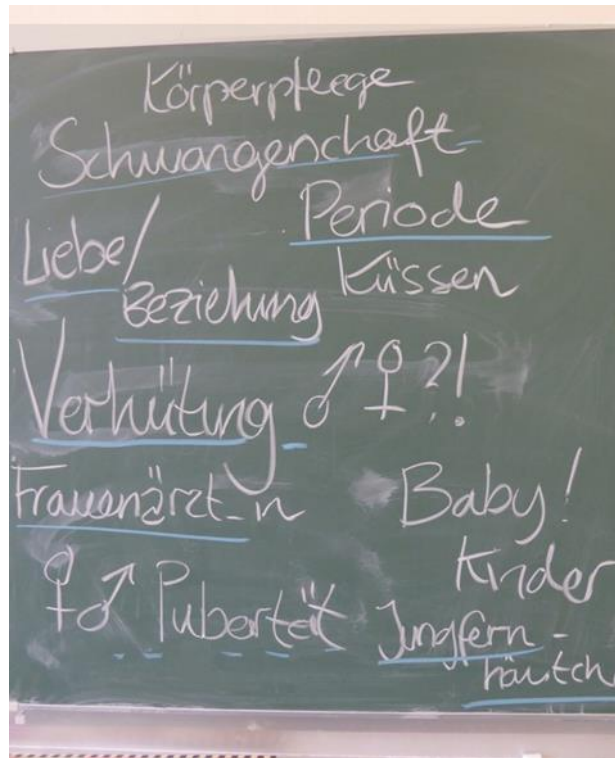 Körperpflege
Schwangerschaft
Periode
Liebe/
Beziehung
Küssen
Verhütung ♂ ♀ ?!
Frauenärzt_in
Baby!
Kinder
♀ ♂ Pubertät
Jungfern-
häutch